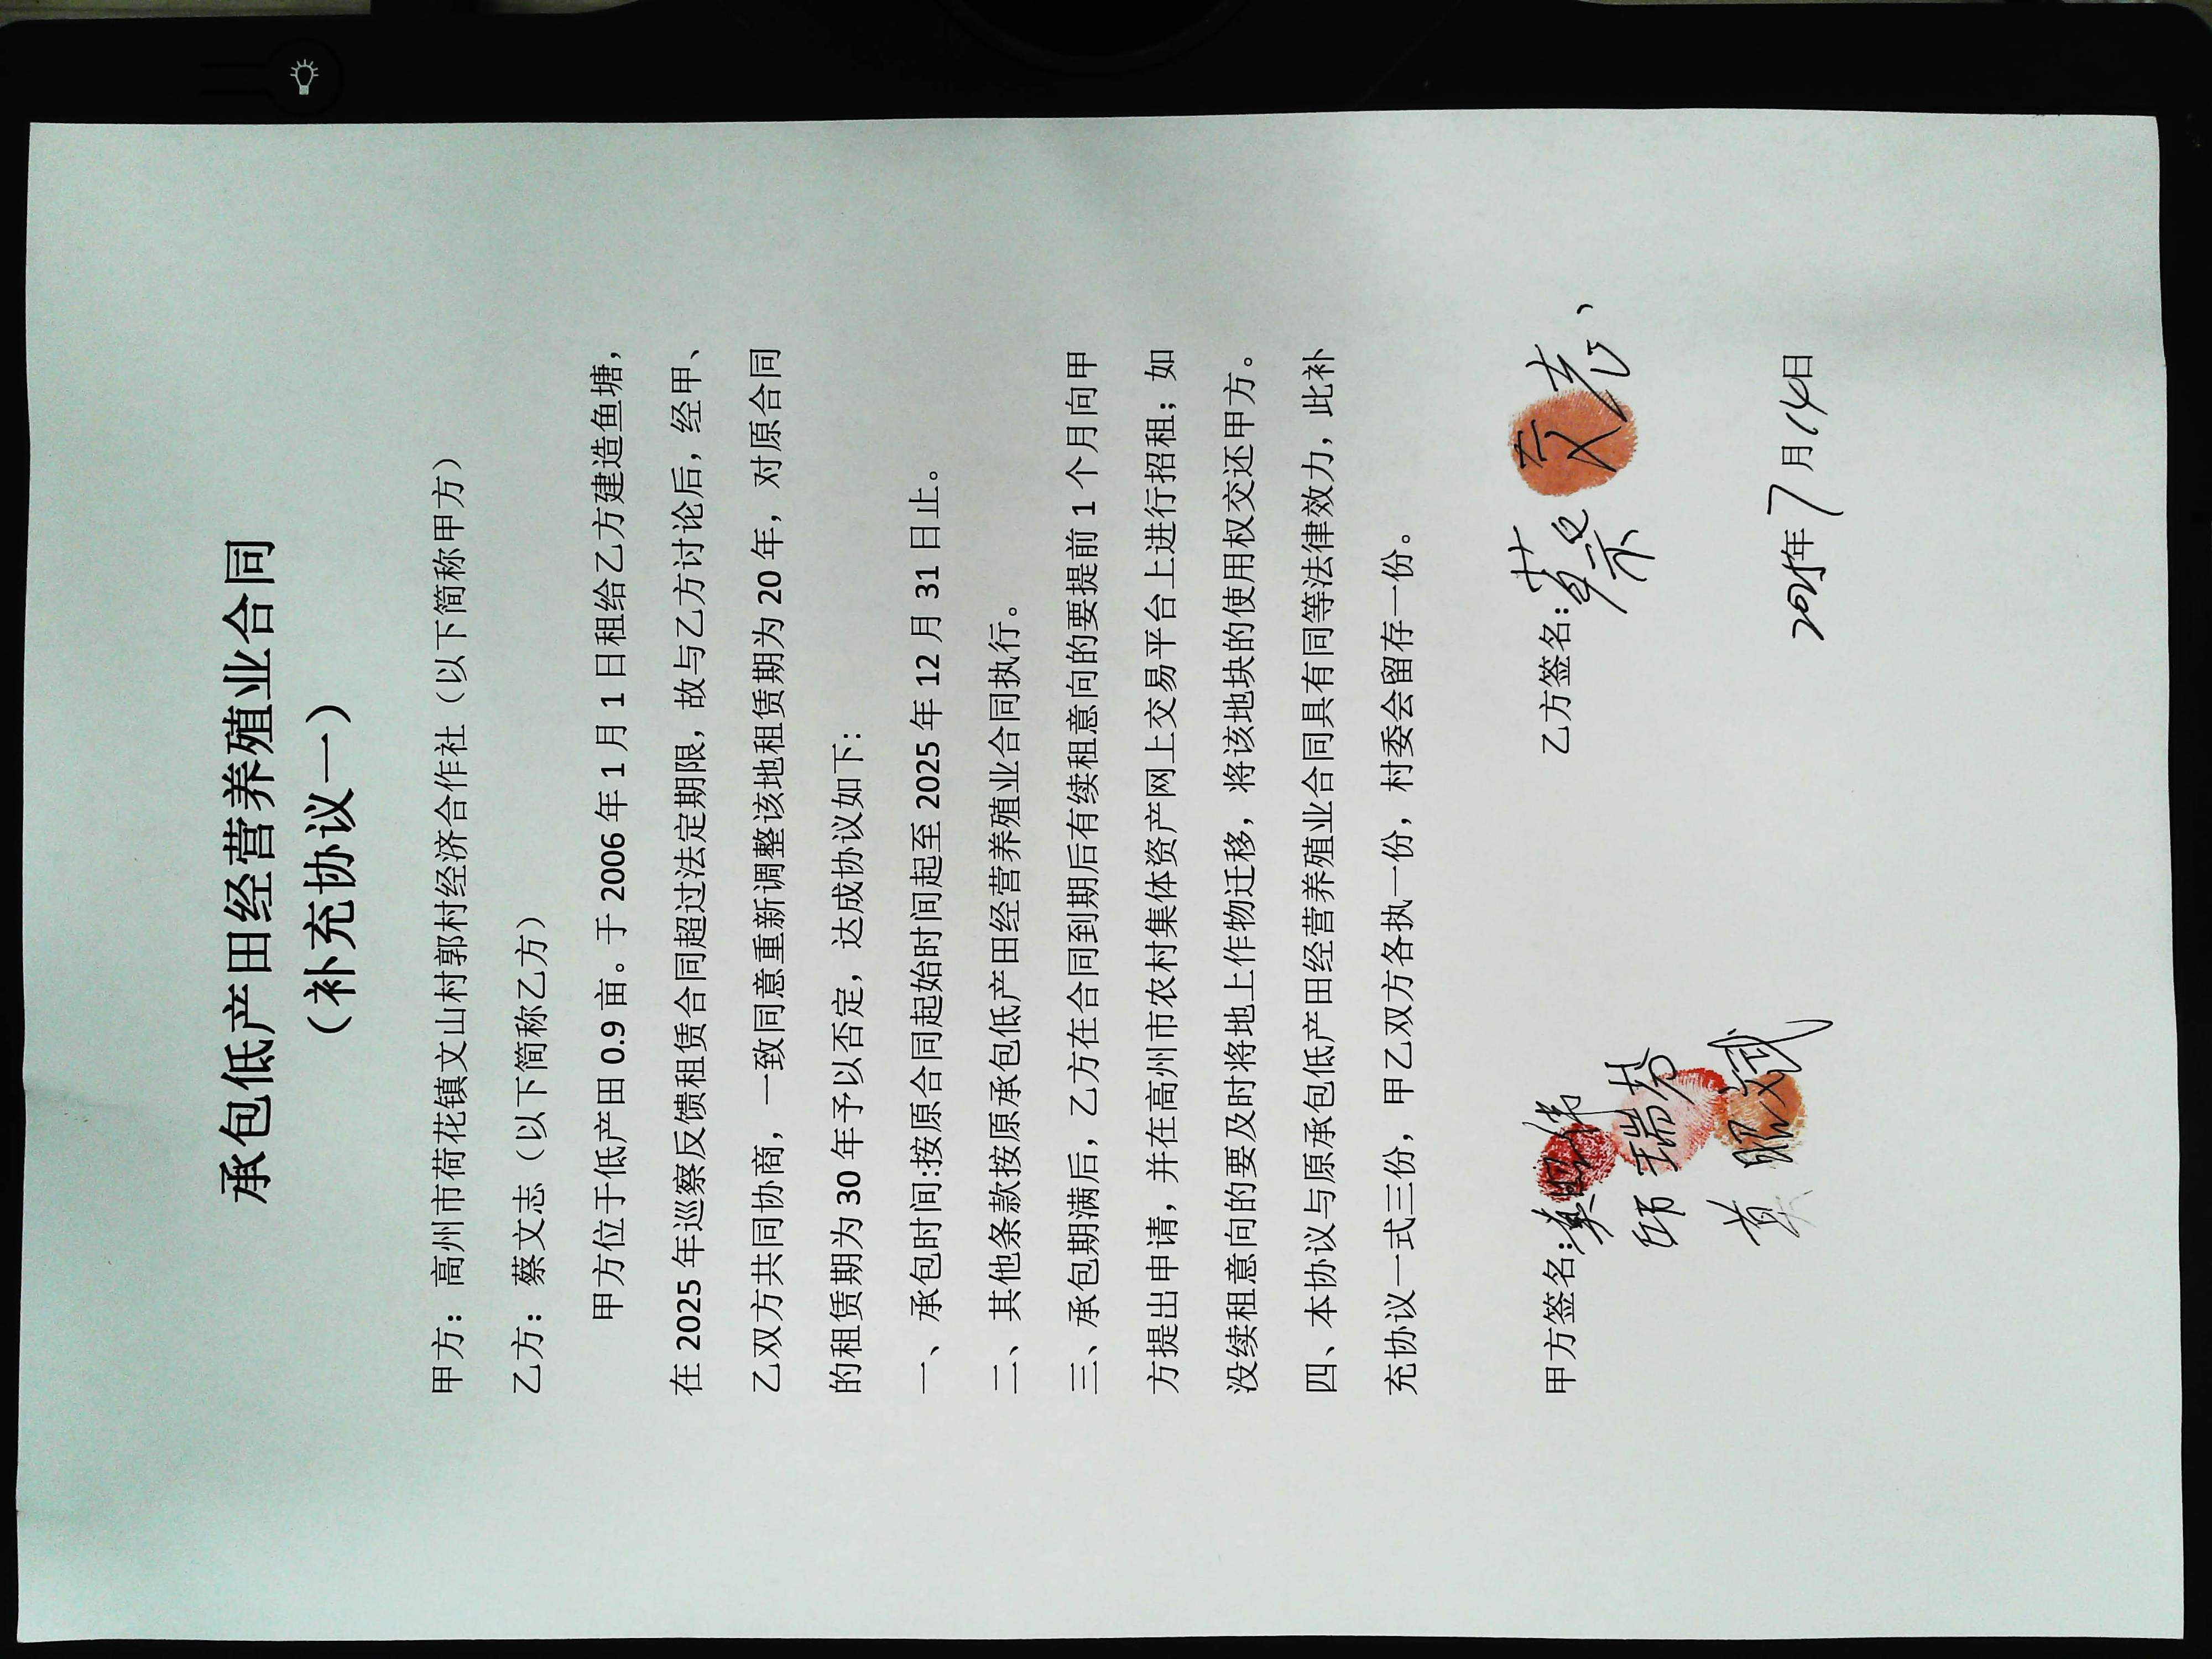 承包低产田经营养殖业合同
（补充协议一）
甲方：高州市荷花镇文山村郭村经济合作社（以下简称甲方）
乙方：蔡文志（以下简称乙方）
甲方位于低产田 0.9 亩。于 2006 年 1 月 1 日租给乙方建造鱼塘，
在 2025 年巡察反馈租赁合同超过法定期限，故与乙方讨论后，经甲、
乙双方共同协商，一致同意重新调整该地租赁期为 20 年，对原合同
的租赁期为 30 年予以否定，达成协议如下：
一、承包时间:按原合同起始时间起至 2025 年 12 月 31 日止。
二、其他条款按原承包低产田经营养殖业合同执行。
三、承包期满后，乙方在合同到期后有续租意向的要提前 1 个月向甲
方提出申请，并在高州市农村集体资产网上交易平台上进行招租；如
没续租意向的要及时将地上作物迁移，将该地块的使用权交还甲方。
四、本协议与原承包低产田经营养殖业合同具有同等法律效力，此补
充协议一式三份，甲乙双方各执一份，村委会留存一份。
甲方签名： 乙方签名：蔡文志
2025年7月14日